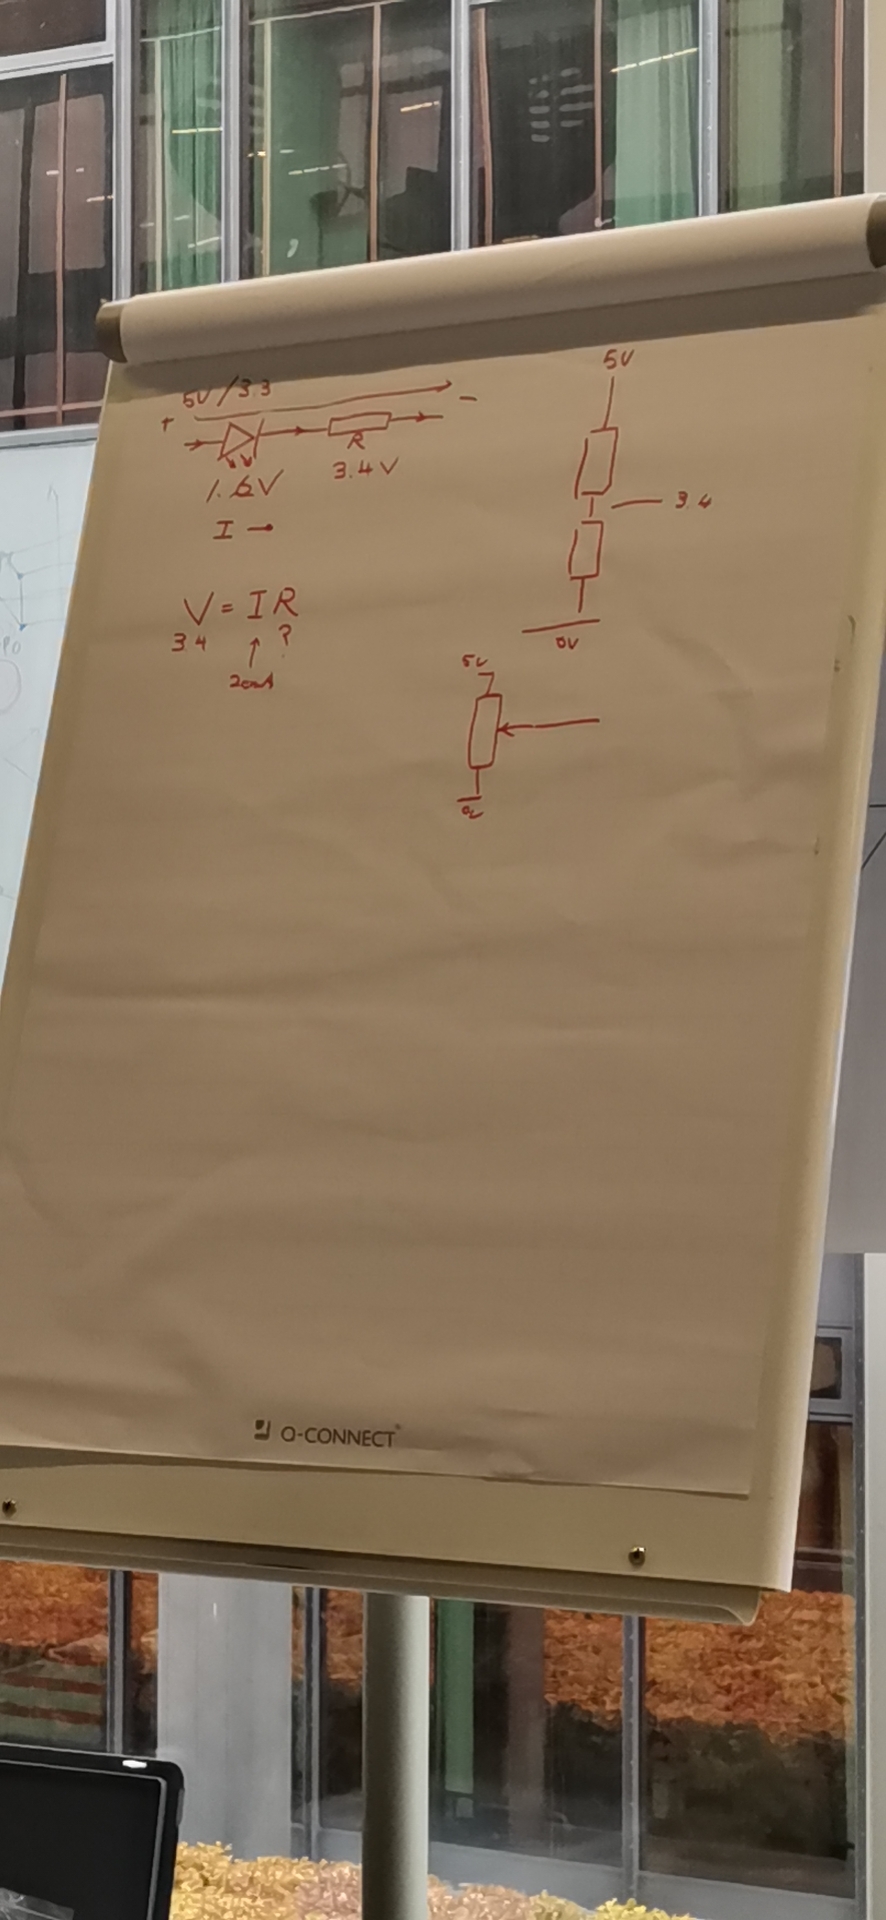 5V/3.3
+
-
R
1.6V
3.4V
I →
V = I R
3.4
↑
?
20mA
5V
3.4
0V
5V
0V
Q-CONNECT